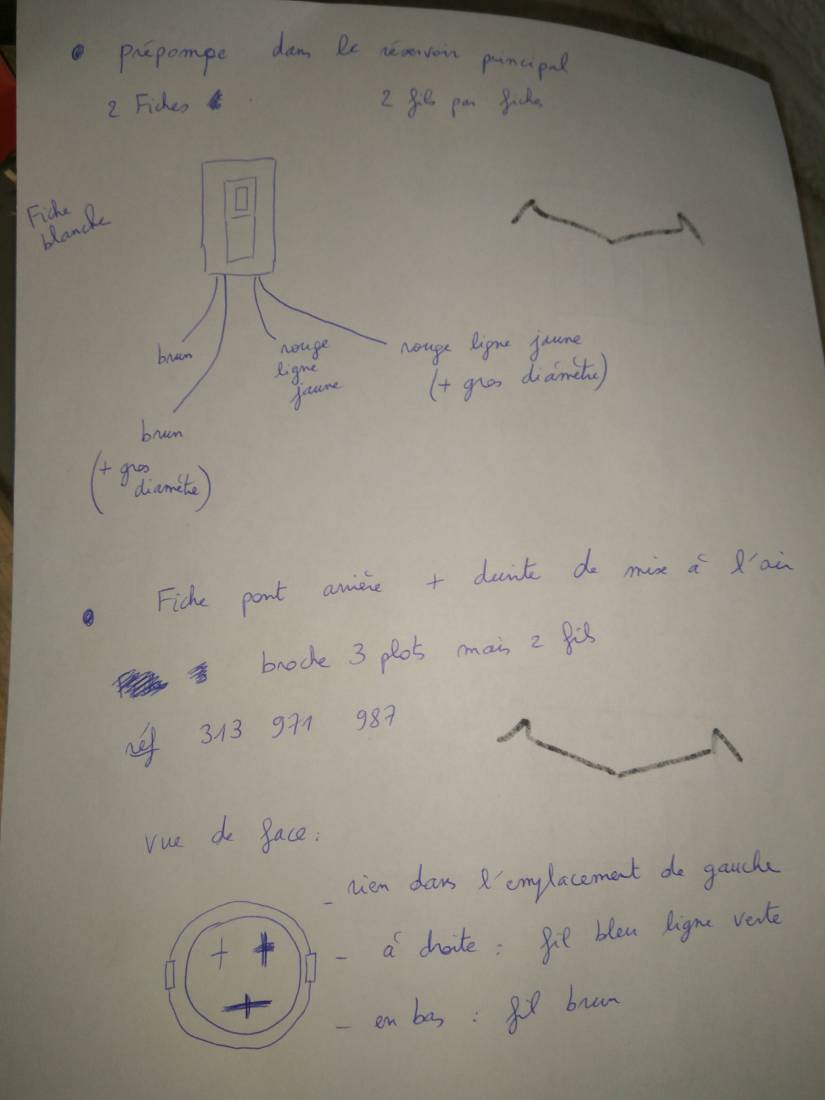 prépompe dans le réservoir principal
2 Fiches 2 fils par fiches
Fiche
blanche
brun
rouge
ligne
jaune
rouge ligne jaune
(+ gros diamètre)
brun
(+ gros
diamètre)
Fiche pont arrière + durite de mise à l'air
broche 3 plots mais 2 fils
réf 313 971 987
vue de face :
- rien dans l'emplacement de gauche
- à droite : fil bleu ligne verte
- en bas : fil brun